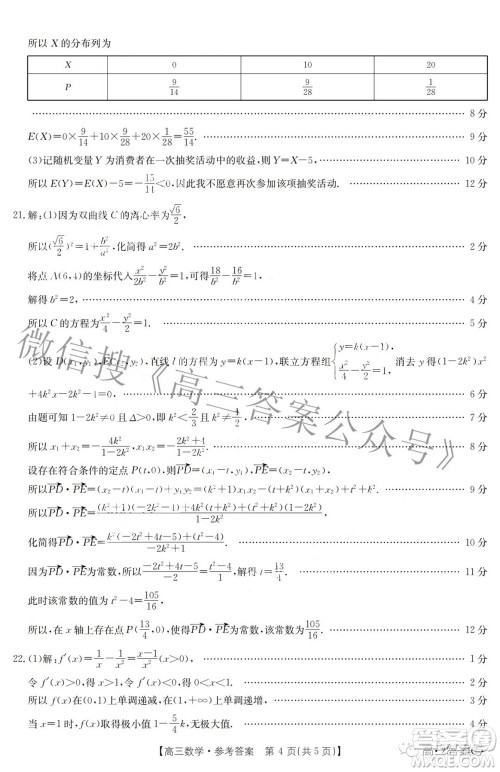 所以 X 的分布列为
X 0 10 20
P 9/14 9/28 1/28
8 分
E(X)=0×9/14+10×9/28+20×1/28=55/14. 9 分
(3)记随机变量 Y 为消费者在一次抽奖活动中的收益,则 Y=X-5, 10 分
所以 E(Y)=E(X)-5=-15/14<0,因此我不愿意再次参加该项抽奖活动. 12 分
21.解:(1)因为双曲线 C 的离心率为√6/2,
所以(√6/2)²=1+b²/a²,化简得 a²=2b². 2 分
将点 A(6,4)的坐标代入x²/2b²-y²/b²=1,可得18/b²-16/b²=1,
解得 b²=2, 4 分
所以 C 的方程为x²/4-y²/2=1. 5 分
(2)设 D(x₁,y₁),E(x₂,y₂),直线 l 的方程为 y=k(x-1),联立方程组{y=k(x-1), x²/4-y²/2=1, 消去 y 得(1-2k²)x²
+4k²x-2k²-4=0, 6 分
由题可知 1-2k²≠0 且 Δ>0,即 k²<2/3且 k²≠1/2, 7 分
所以 x₁+x₂=-4k²/(1-2k²),x₁x₂=-(2k²+4)/(1-2k²). 8 分
设存在符合条件的定点 P(t,0),则PD=(x₁-t,y₁),PE=(x₂-t,y₂), 9 分
所以PD·PE=(x₂-t)(x₁-t)+y₁y₂=(k²+1)x₁x₂-(t+k²)(x₁+x₂)+t²+k².
所以PD·PE=((k²+1)(-2k²-4)+4k²(t+k²)+(t²+k²)(1-2k²))/(1-2k²)
化简得PD·PE=(k²(-2t²+4t-5)+(t²-4))/(-2k²+1) 10 分
因为PD·PE为常数,所以(-2t²+4t-5)/(-2)=(t²-4)/1,解得 t=13/4. 11 分
此时该常数的值为 t²-4=105/16,
所以,在 x 轴上存在点 P(13/4,0),使得PD·PE为常数,该常数为105/16. 12 分
22.(1)解:f′(x)=1/x-1/x²=(x-1)/x²(x>0), 1 分
令 f′(x)<0,得 0<x<1;令 f′(x)>0,得 x>1.
所以 f(x)在(0,1)上单调递减,在(1,+∞)上单调递增. 2 分
当 x=1 时,f(x)取得极小值且极小值为 1-5/4k,无极大值. 4 分
【高三数学·参考答案 第 4 页(共 5 页)】
微信搜《高三答案公众号》